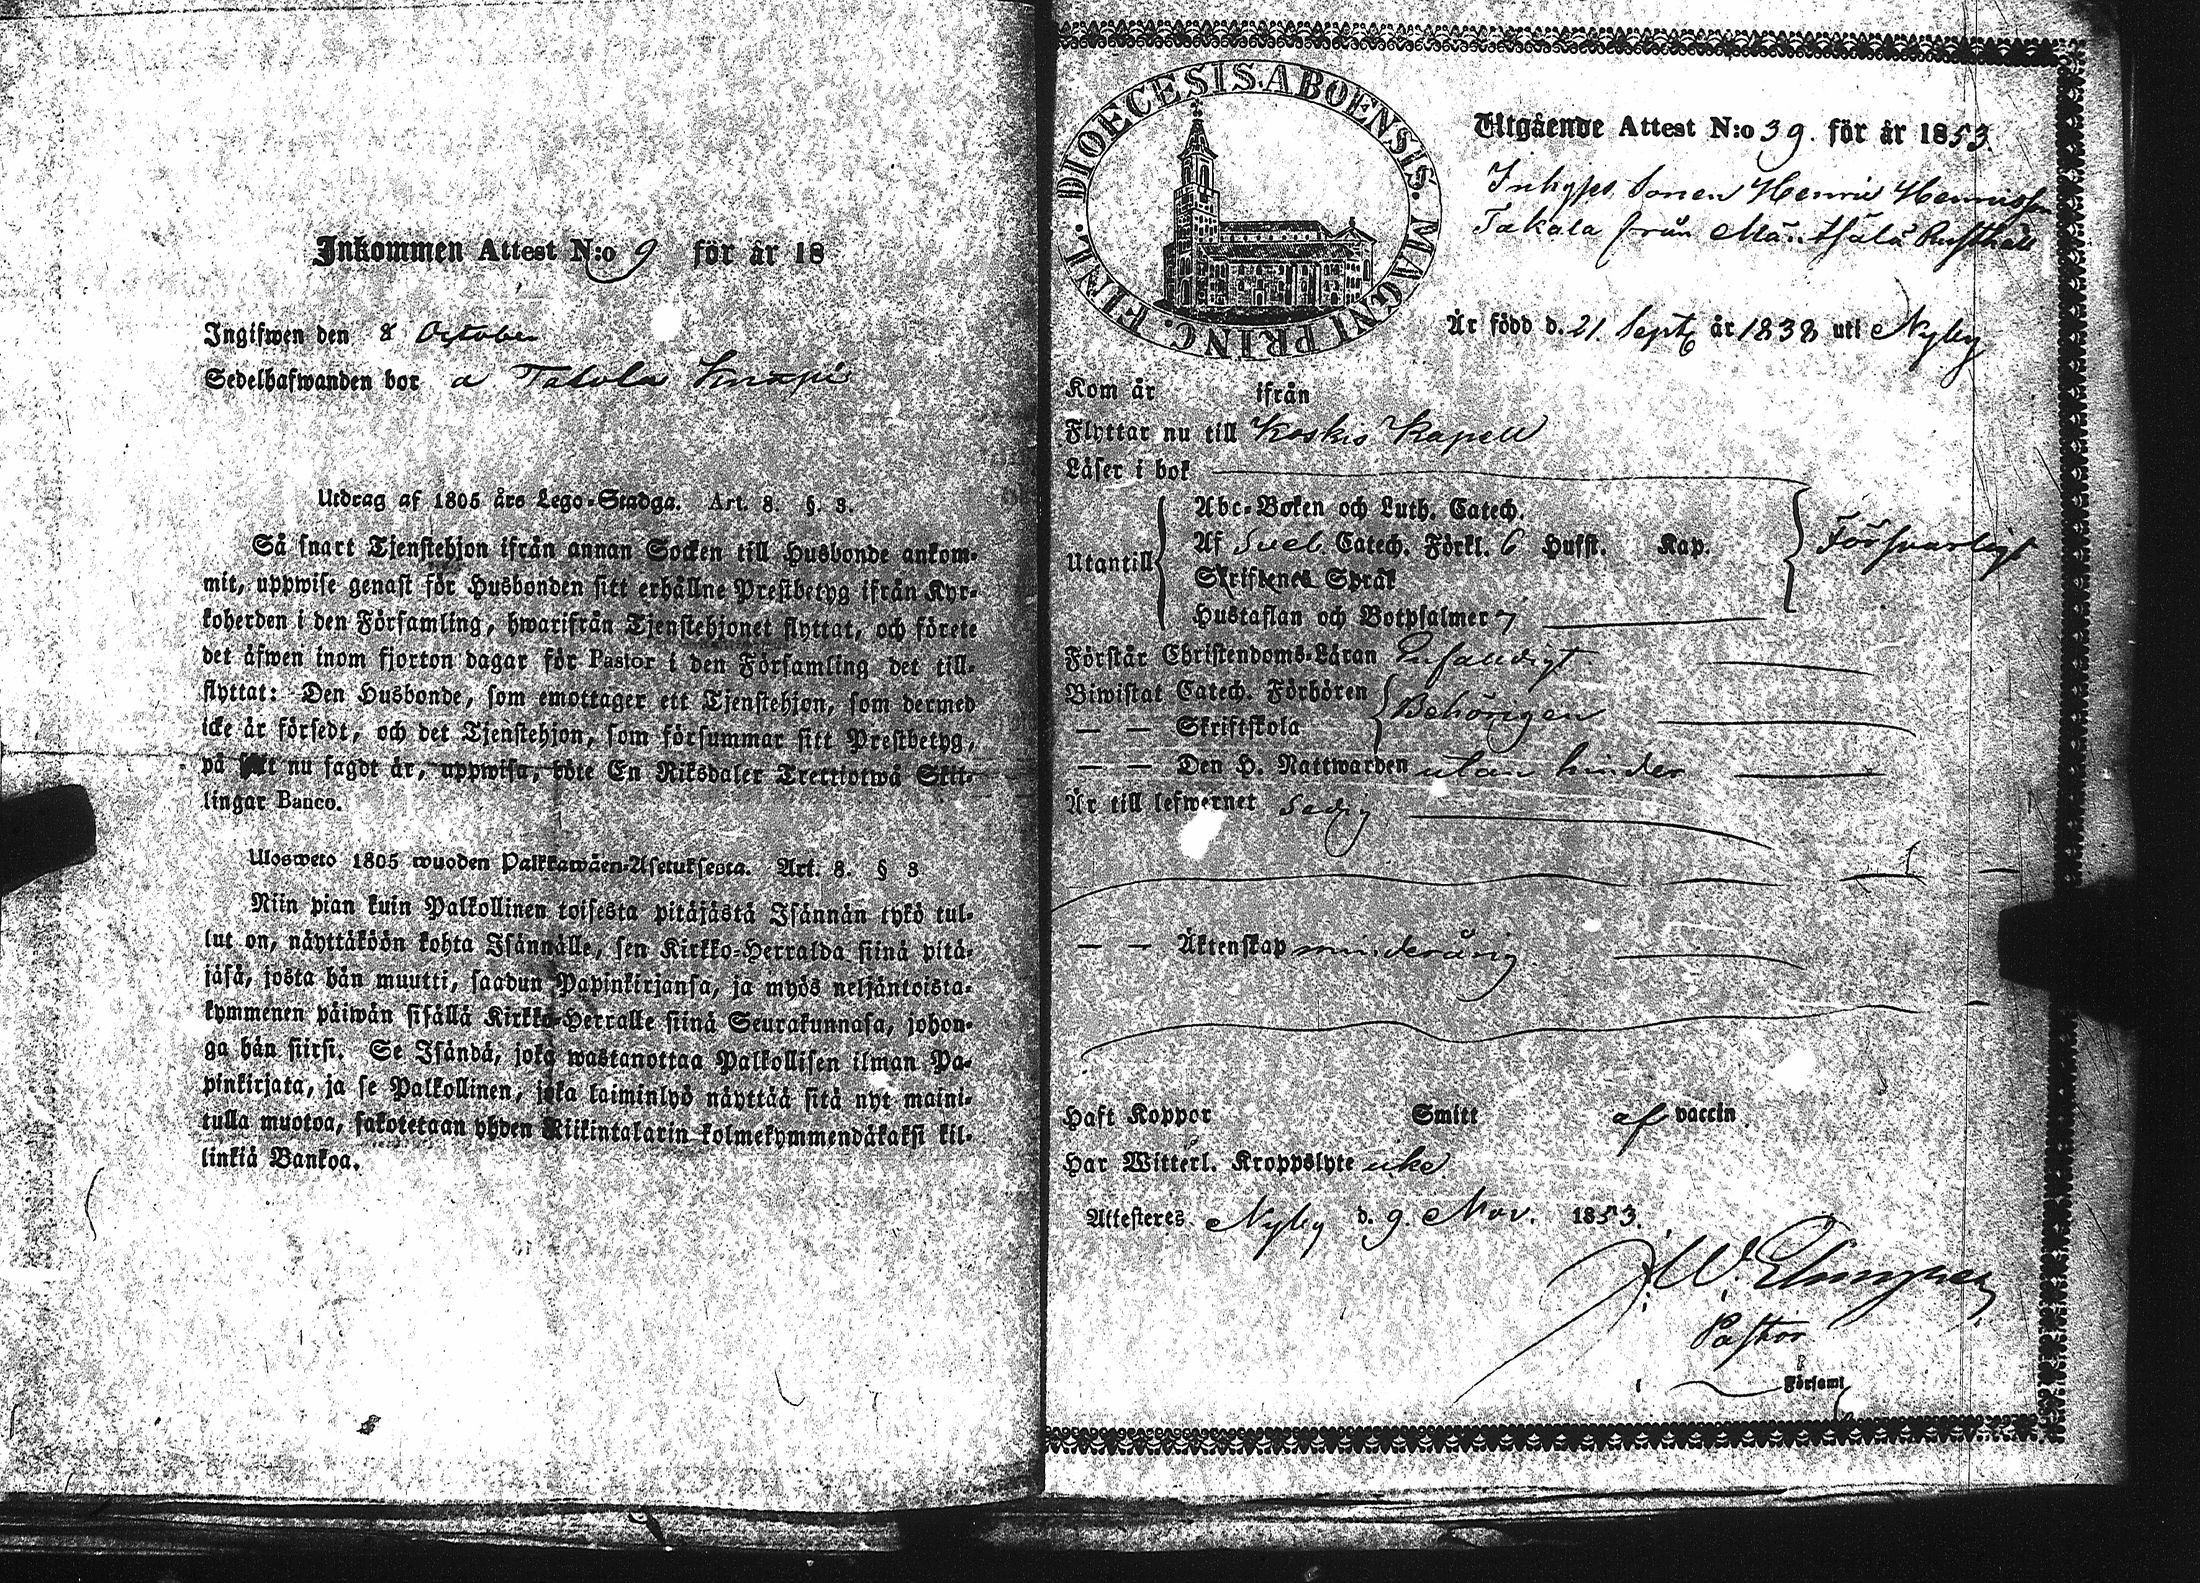 Inkommen Attest N:o 9 för år 18
Ingifwen den 8 October
Sedelhafwanden bor a Tatola
Utdrag af 1805 års Lego-Stadga. Art. 8. §. 3.
Så snart Tjenstehjon ifrån annan Socken till Husbonde ankom-
mit, uppwise genast för Husbonden sitt erhållne Prestbetyg ifrån Kyr-
koherden i den Församling, hwarifrån Tjenstehjonet flyttat, och förete
det äfwen inom fjorton dagar för Pastor i den Församling det till-
flyttat: Den Husbonde, som emottager ett Tjenstehjon, som dermed
icke är försedt, och det Tjenstehjon, som försummar sitt Prestbetyg,
på sätt nu sagdt är, uppwisa, böte En Riksdaler Trettiotwå Skil-
lingar Banco.
Ulosweto 1805 wuoden Palkkawäen-Asetuksesta. Art. 8. § 3
Niin pian kuin Palkollinen toisesta pitäjästä Isännän tykö tul-
lut on, näyttäköön kohta Isännälle, sen Kirkko-Herralda siinä pitä-
jäsä, josta hän muutti, saadun Papinkirjansa, ja myös neljäntoista-
kymmenen päiwän sisällä Kirkko-Herralle siinä Seurakunnasa, johon-
ga hän siirsi. Se Isändä, joka wastanottaa Palkollisen ilman Pa-
pinkirjata, ja se Palkollinen, joka laiminlyö näyttää sitä nyt maini-
tulla muotoa, sakotetaan yhden Riikintalarin kolmekymmendäkaksi kil-
linkiä Bankoa.
DIOECESIS. ABOENSIS. MAGNI PRINC. FINL.
Utgående Attest N:o 39. för år 1853.
Inhyses Sonen Henric Henricsson
Takala från Mäntsälä Rusthåll
Är född d. 21. Sept. år 1838 uti Nyby
Kom år ifrån
Flyttar nu till Koskis Kapell
Läser i bok
Utantill
Abc-Boken och Luth. Catech.
Af Sveb. Catech. Förkl. 6 Hufst. Kap.
Skriftenes Språk
Hustaflan och Botpsalmer 7
Försvarligt
Förstår Christendoms-Läran Enfaldigt
Biwistat Catech. Förhören
— — Skriftskola
Behörigen
— — Den H. Nattwarden utan hinder
Är till lefwernet Sedig
— — Äktenskap minderårig
Haft Koppor Smitt af vaccin
Har Witterl. Kroppslyte icke
Attesteres Nyby d. 9. Nov. 1853.
Pastor
i Församl